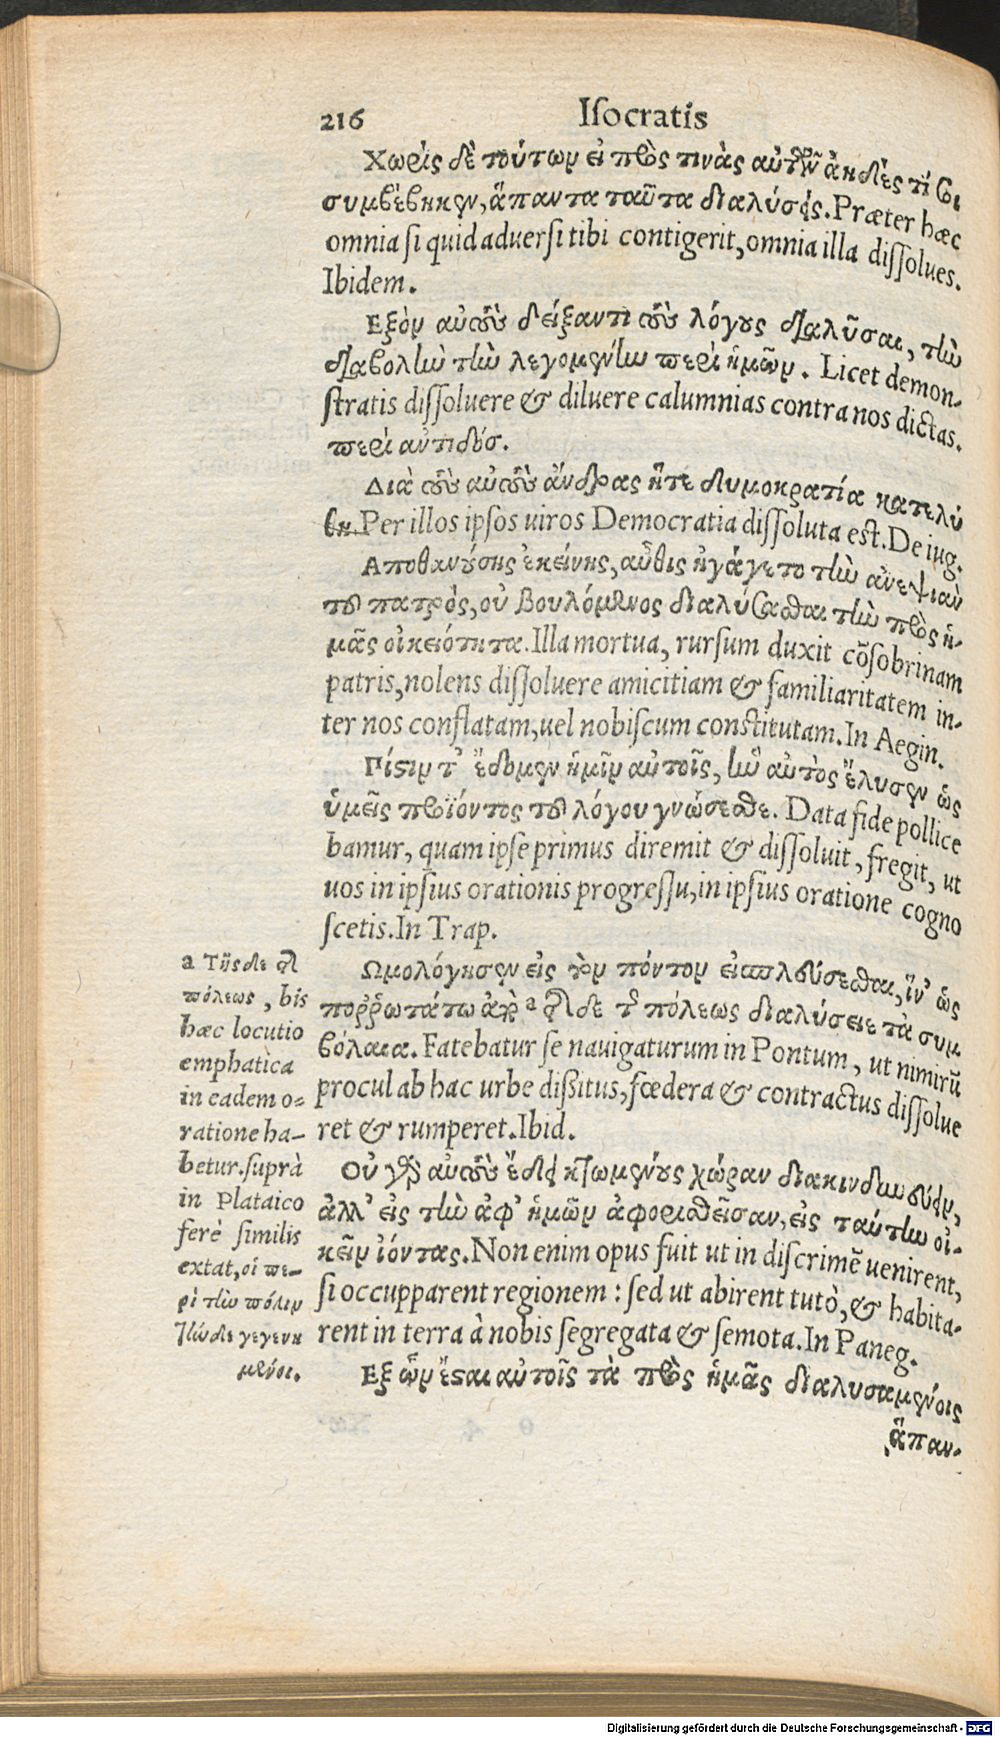 216 Iſocratis
Χωρὶς δὲ τούτων εἰ πρὸς τινὰς αὐτῶν ἀηδές τί σοι
συμβέβηκεν, ἅπαντα ταῦτα διαλύσεις. Præter hæc
omnia ſi quid aduerſi tibi contigerit, omnia illa diſſolues.
Ibidem.
Εξὸν αὐτοὺς δείξαντι τοὺς λόγους διαλῦσαι, τὴν
διαβολὴν τὴν λεγομένην περὶ ἡμῶν. Licet demon-
ſtratis diſſoluere & diluere calumnias contra nos dictas.
περὶ ἀντιδόσ.
Διὰ τοὺς αὐτοὺς ἄνδρας ἥτε δημοκρατία κατελύ
θη. Per illos ipſos uiros Democratia diſſoluta eſt. De iug.
Αποθανούσης ἐκείνης, αὖθις ἠγάγετο τὴν ἀνεψιὰν
τοῦ πατρὸς, οὐ βουλόμενος διαλύσασθαι τὴν πρὸς ἡ-
μᾶς οἰκειότητα. Illa mortua, rurſum duxit cōſobrinam
patris, nolens diſſoluere amicitiam & familiaritatem in-
ter nos conflatam, uel nobiſcum conſtitutam. In Aegin.
Πίστιν τ' ἔδομεν ἡμῖν αὐτοῖς, ἣν αὐτὸς ἔλυσεν ὡς
ὑμεῖς προϊόντος τοῦ λόγου γνώσεσθε. Data fide pollice
bamur, quam ipſe primus diremit & diſſoluit, fregit, ut
uos in ipſius orationis progreſſu, in ipſius oratione cogno
ſcetis. In Trap.
Ωμολόγησεν εἰς τὸν πόντον εἰσπλεύσεσθαι, ἵν' ὡς
ποῤῥωτάτω ἀπὸ a τῆσδε τῆς πόλεως διαλύσειε τὰ συμ
βόλαια. Fatebatur ſe nauigaturum in Pontum, ut nimirū
procul ab hac urbe diſsitus, fœdera & contractus diſſolue
ret & rumperet. Ibid.
Οὐ γὰρ αὐτοὺς ἔδει κτωμένους χώραν διακινδυνεύειν,
ἀλλ' εἰς τὴν ἀφ' ἡμῶν ἀφορισθεῖσαν, εἰς ταύτην οἰ-
κεῖν ἰόντας. Non enim opus fuit ut in diſcrimē uenirent,
ſi occupparent regionem : ſed ut abirent tutò, & habita-
rent in terra à nobis ſegregata & ſemota. In Paneg.
Εξ ὧν ἔσται αὐτοῖς τὰ πρὸς ἡμᾶς διαλυσαμένοις
ἅπαν-
a Τῆσδε τῆς
πόλεως, bis
hæc locutio
emphatica
in eadem o-
ratione ha-
betur. ſuprà
in Plataico
ferè ſimilis
extat, οἱ πε-
ρὶ τὴν πόλιν
τήνδε γεγενη
μένοι.
Digitalisierung gefördert durch die Deutsche Forschungsgemeinschaft - DFG